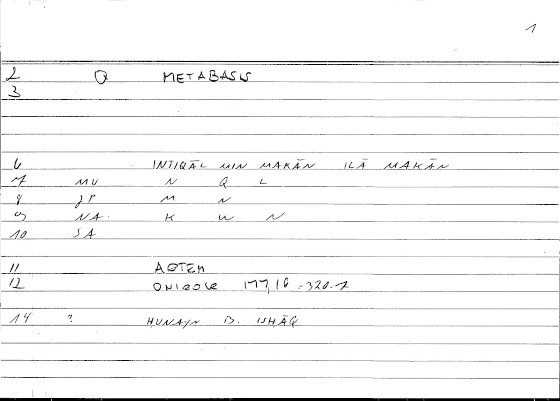 1
2 Q METABASIS
3
6 INTIQĀL MIN MAKĀN ILĀ MAKĀN
7 MU N Q L
8 JP M N
9 NA. K W N
10 SA
11 ARTEM
12 ONIROCR 177,18 = 320.7
14 ? HUNAYN B. ISHĀQ